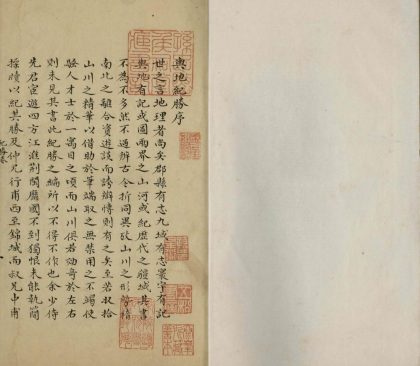 輿地紀勝序
世之言地理者尚矣郡縣有志九域有志寰宇有記
輿地有記或圖兩界之山河或紀歷代之疆域其書
不為不多然不過辨古今析同異攷山川之形勢稽
南北之離合資遊談而誇辨博則有之矣至若收拾
山川之精華以借助於筆端取之無禁用之不竭使
騷人才士於一寓目之頃而山川俱若効奇於左右
則未見其書此紀勝之編所以不得不作也余少侍
先君宦遊四方江淮荆閩靡國不到獨恨未能執簡
操牘以紀其勝及仲兄行甫西至錦城而叔兄中甫